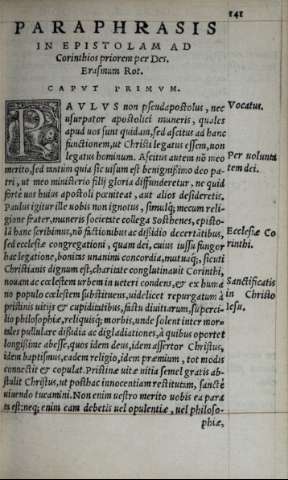 141
PARAPHRASIS
IN EPISTOLAM AD
Corinthios priorem per Des.
Erasmum Rot.
CAPVT PRIMVM.
PAVLVS non pseudapostolus, nec
usurpator apostolici muneris, quales
apud uos sunt quidam, sed ascitus ad hanc
functionem, ut Christi legatus essem, non
legatus hominum. Ascitus autem nõ meo
merito, sed tantum quia sic uisum est benignissimo deo pa-
tri, ut meo ministerio filij gloria diffunderetur, ne quid
forte uos huius apostoli pœniteat, aut alios desideretis,
Paulus igitur ille uobis non ignotus, simulq; mecum reli-
gione frater, muneris societate collega Sosthenes, episto-
lã hanc scribimus, nõ factionibus ac dissidio decertãtibus,
sed ecclesiæ congregationi, quam dei, cuius iussu fungor
hac legatione, bonitas unanimi concordia, mutuaq;, sicuti
Christianis dignum est, charitate conglutinauit Corinthi,
nouam ac cœlestem urbem in ueteri condens, & ex humã
no populo cœlestem substituens, uidelicet repurgatum à
pristinis uitijs & cupiditatibus, fastu diuitiarum, superci-
lio philosophiæ, reliquisq; morbis, unde solent inter mor-
tales pullulare dissidia ac digladiationes, à quibus oportet
longissime abesse, quos idem deus, idem assertor Christus,
idem baptismus, eadem religio, idem præmium, tot modis
connectit & copulat. Pristinæ uitæ uitia semel gratis ab-
stulit Christus, ut posthac innocentiam rectitutam, sanctè
uiuendo tueamini. Non enim uestro merito uobis ea para
ta est: neq; enim eam debetis uel opulentiæ, uel philoso-
phiæ,
Vocatus.
Per uolunta
tem dei.
Ecclesiæ Co
rinthi.
Sanctificatis
in Christo
Iesu.